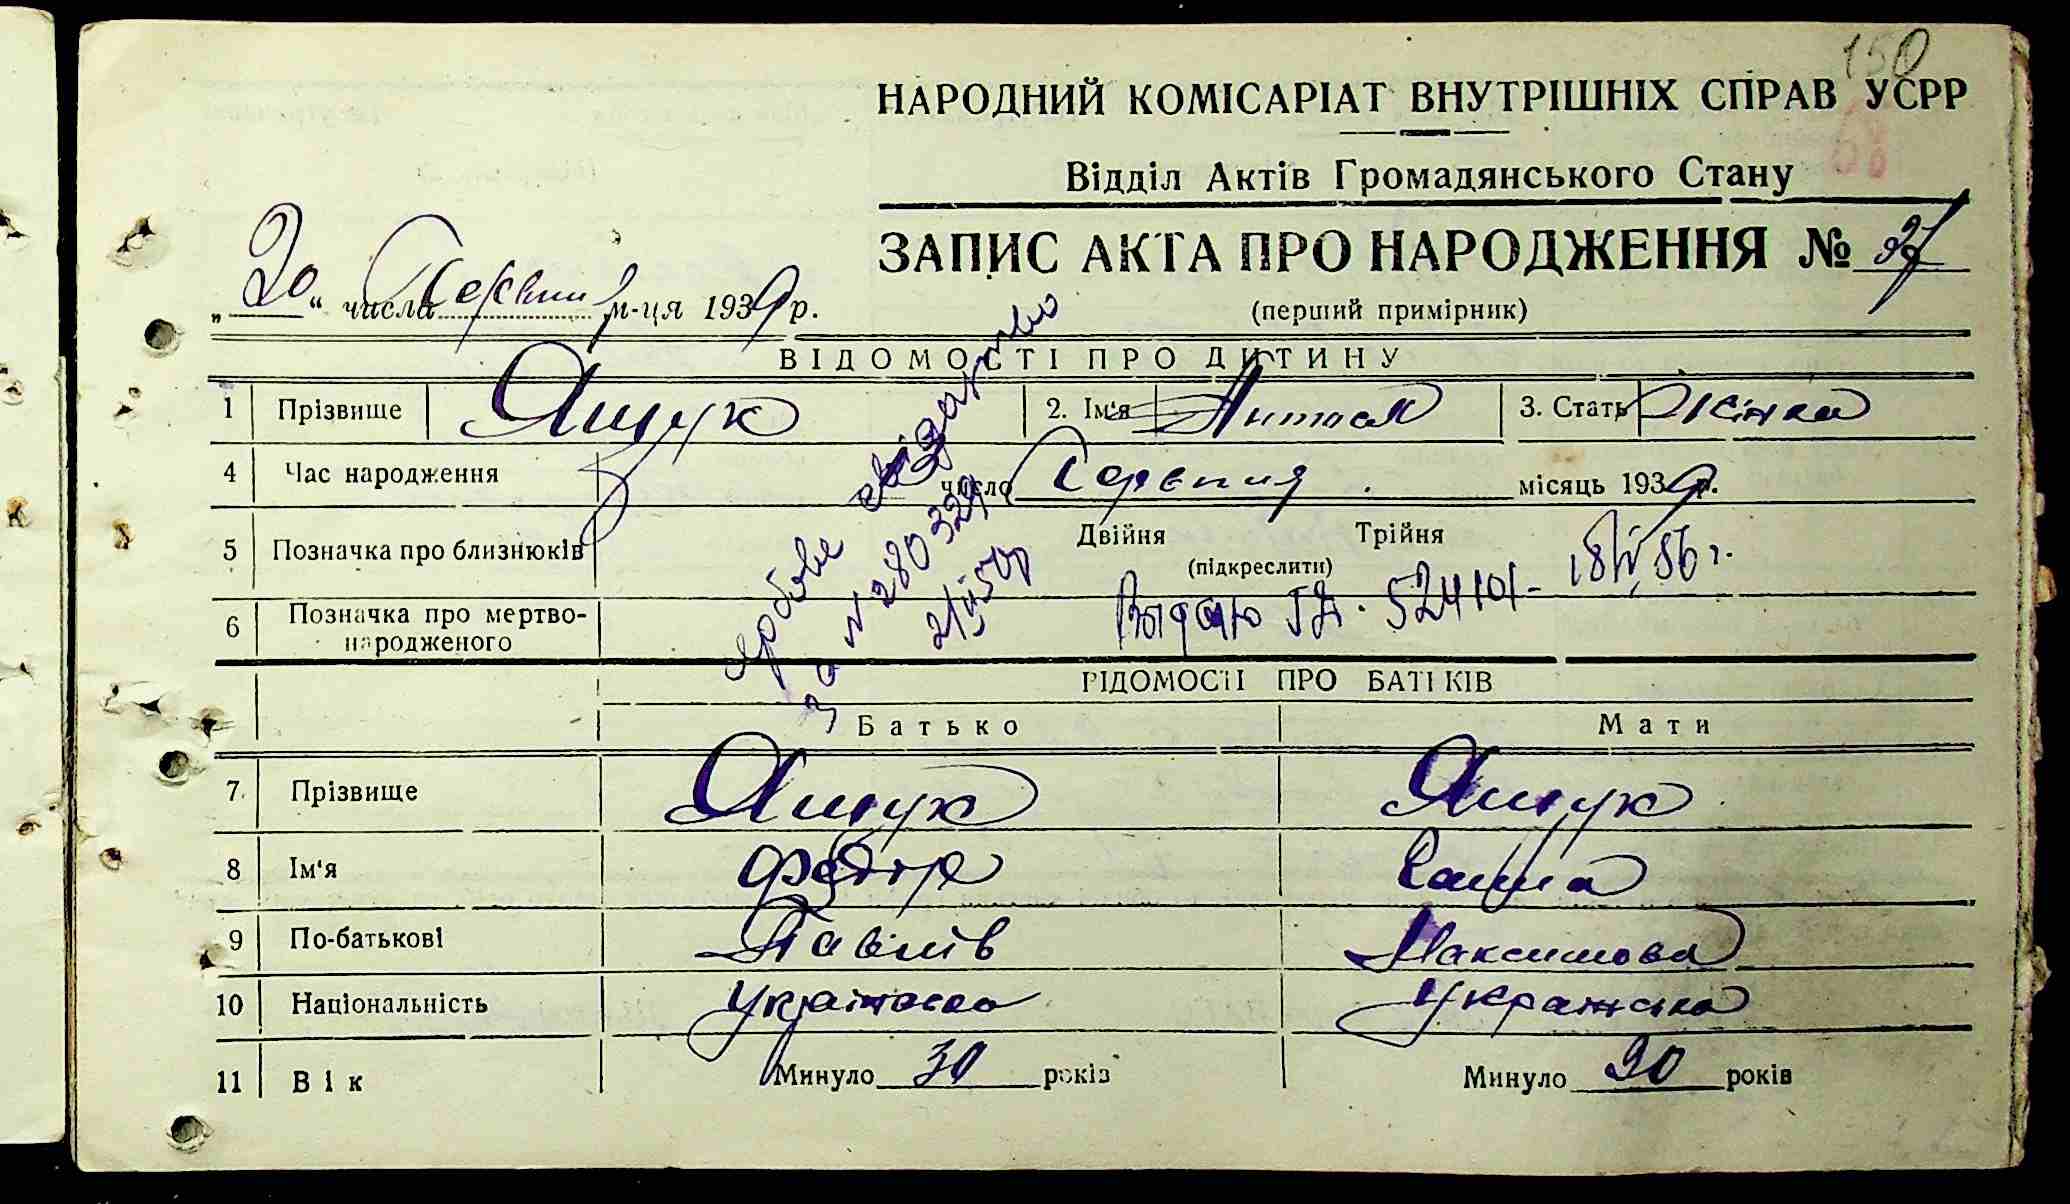 150
НАРОДНИЙ КОМІСАРІАТ ВНУТРІШНІХ СПРАВ УСРР
Відділ Актів Громадянського Стану
ЗАПИС АКТА ПРО НАРОДЖЕННЯ № 37
„20“ числа Серпня м-ця 1939 р.
(перший примірник)
ВІДОМОСТІ ПРО ДИТИНУ
1 Прізвище Ящук 2. Ім'я 3. Стать Жінка
4 Час народження число Серпня місяць 1939 р.
5 Позначка про близнюків Двійня Трійня
(підкреслити)
6 Позначка про мертво-
народженого
свідоцтво
за № 280329
Выдано 524101 - 18/IV 86 г.
ВІДОМОСТІ ПРО БАТЬКІВ
Батько Мати
7 Прізвище Ящук Ящук
8 Ім'я Федір Ганна
9 По-батькові Павлів Максимова
10 Національність Українська
11 Вік Минуло 30 років Минуло 30 років